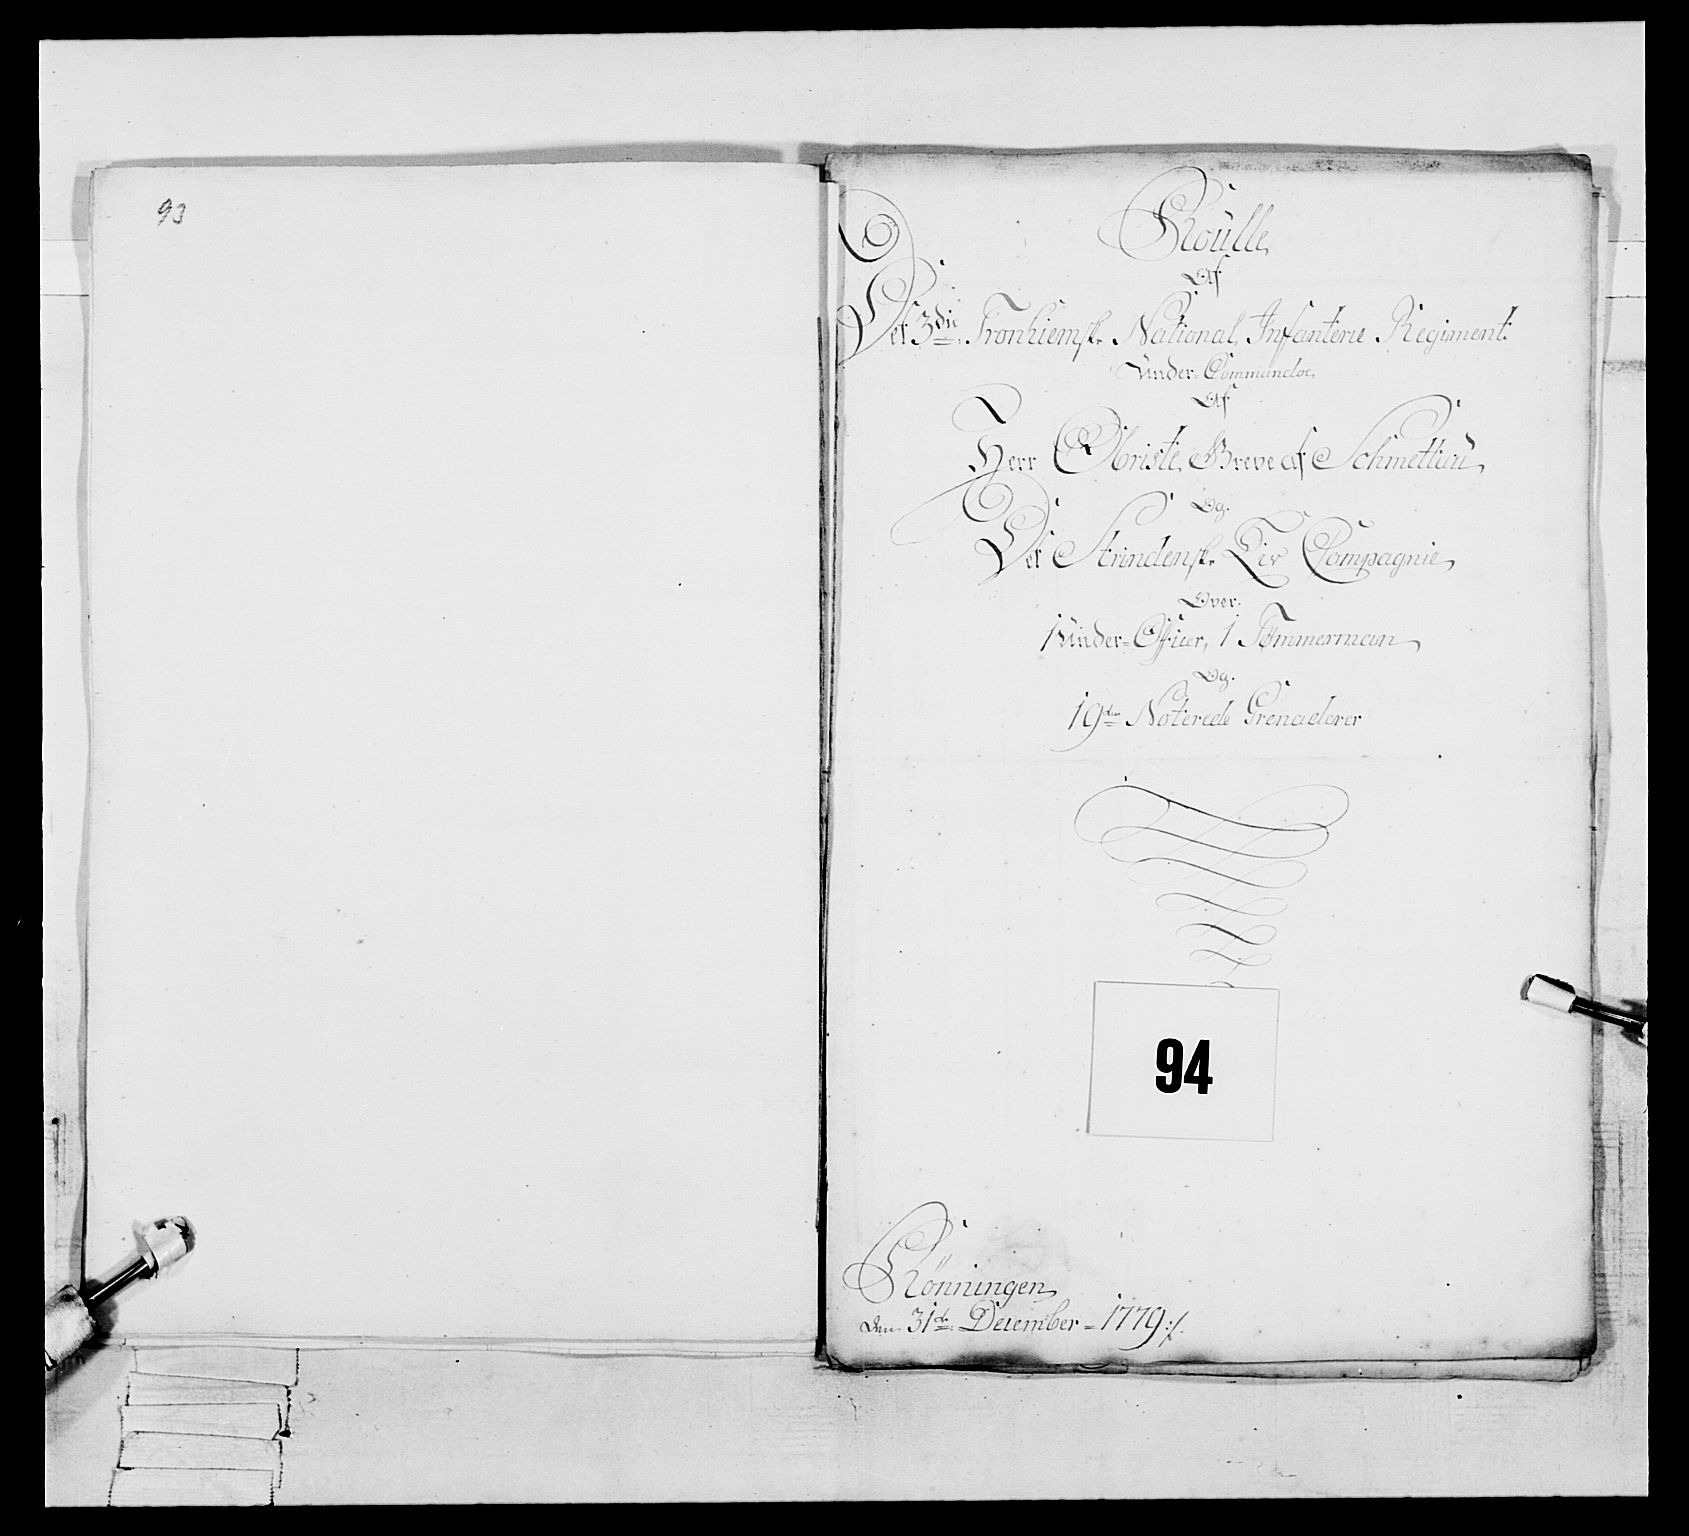 93
Roulle
Af
Det 3die Tronhiemske National Infanterie Regiment
Under-Commandoe
Af
Herr Obriste Greve af Schmettau
Og
Det Strindenske Liv Compagnie
Over
1 Under-Officier, 1 Tømmerman
Og
19den Noterede Grenaderer
94
Rönningen
den 31de December = 1779 :/.